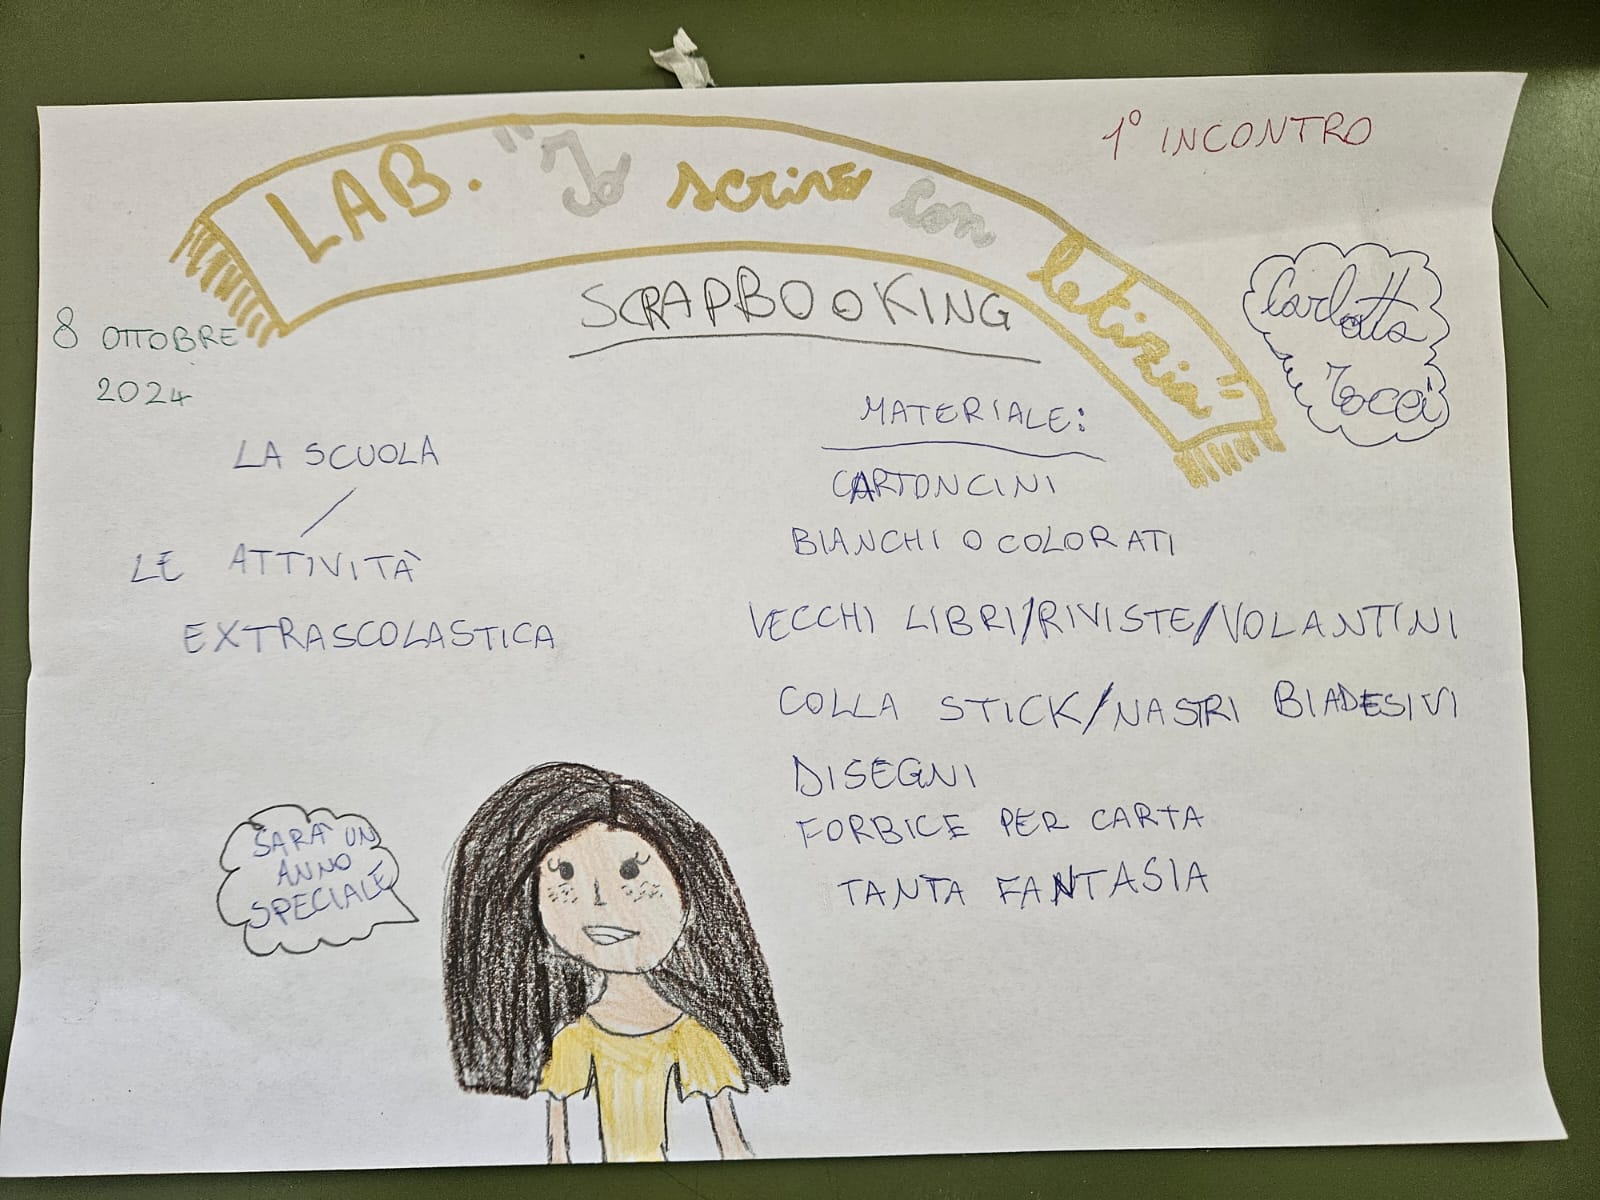 1° INCONTRO
LAB. "Io scrivo con letizia"
SCRAPBOOKING
Carlotta
Tocci
8 OTTOBRE
2024
LA SCUOLA
/
LE ATTIVITÀ
EXTRASCOLASTICA
MATERIALE:
CARTONCINI
BIANCHI O COLORATI
VECCHI LIBRI/RIVISTE/VOLANTINI
COLLA STICK/NASTRI BIADESIVI
DISEGNI
FORBICE PER CARTA
TANTA FANTASIA
SARÀ UN
ANNO
SPECIALE